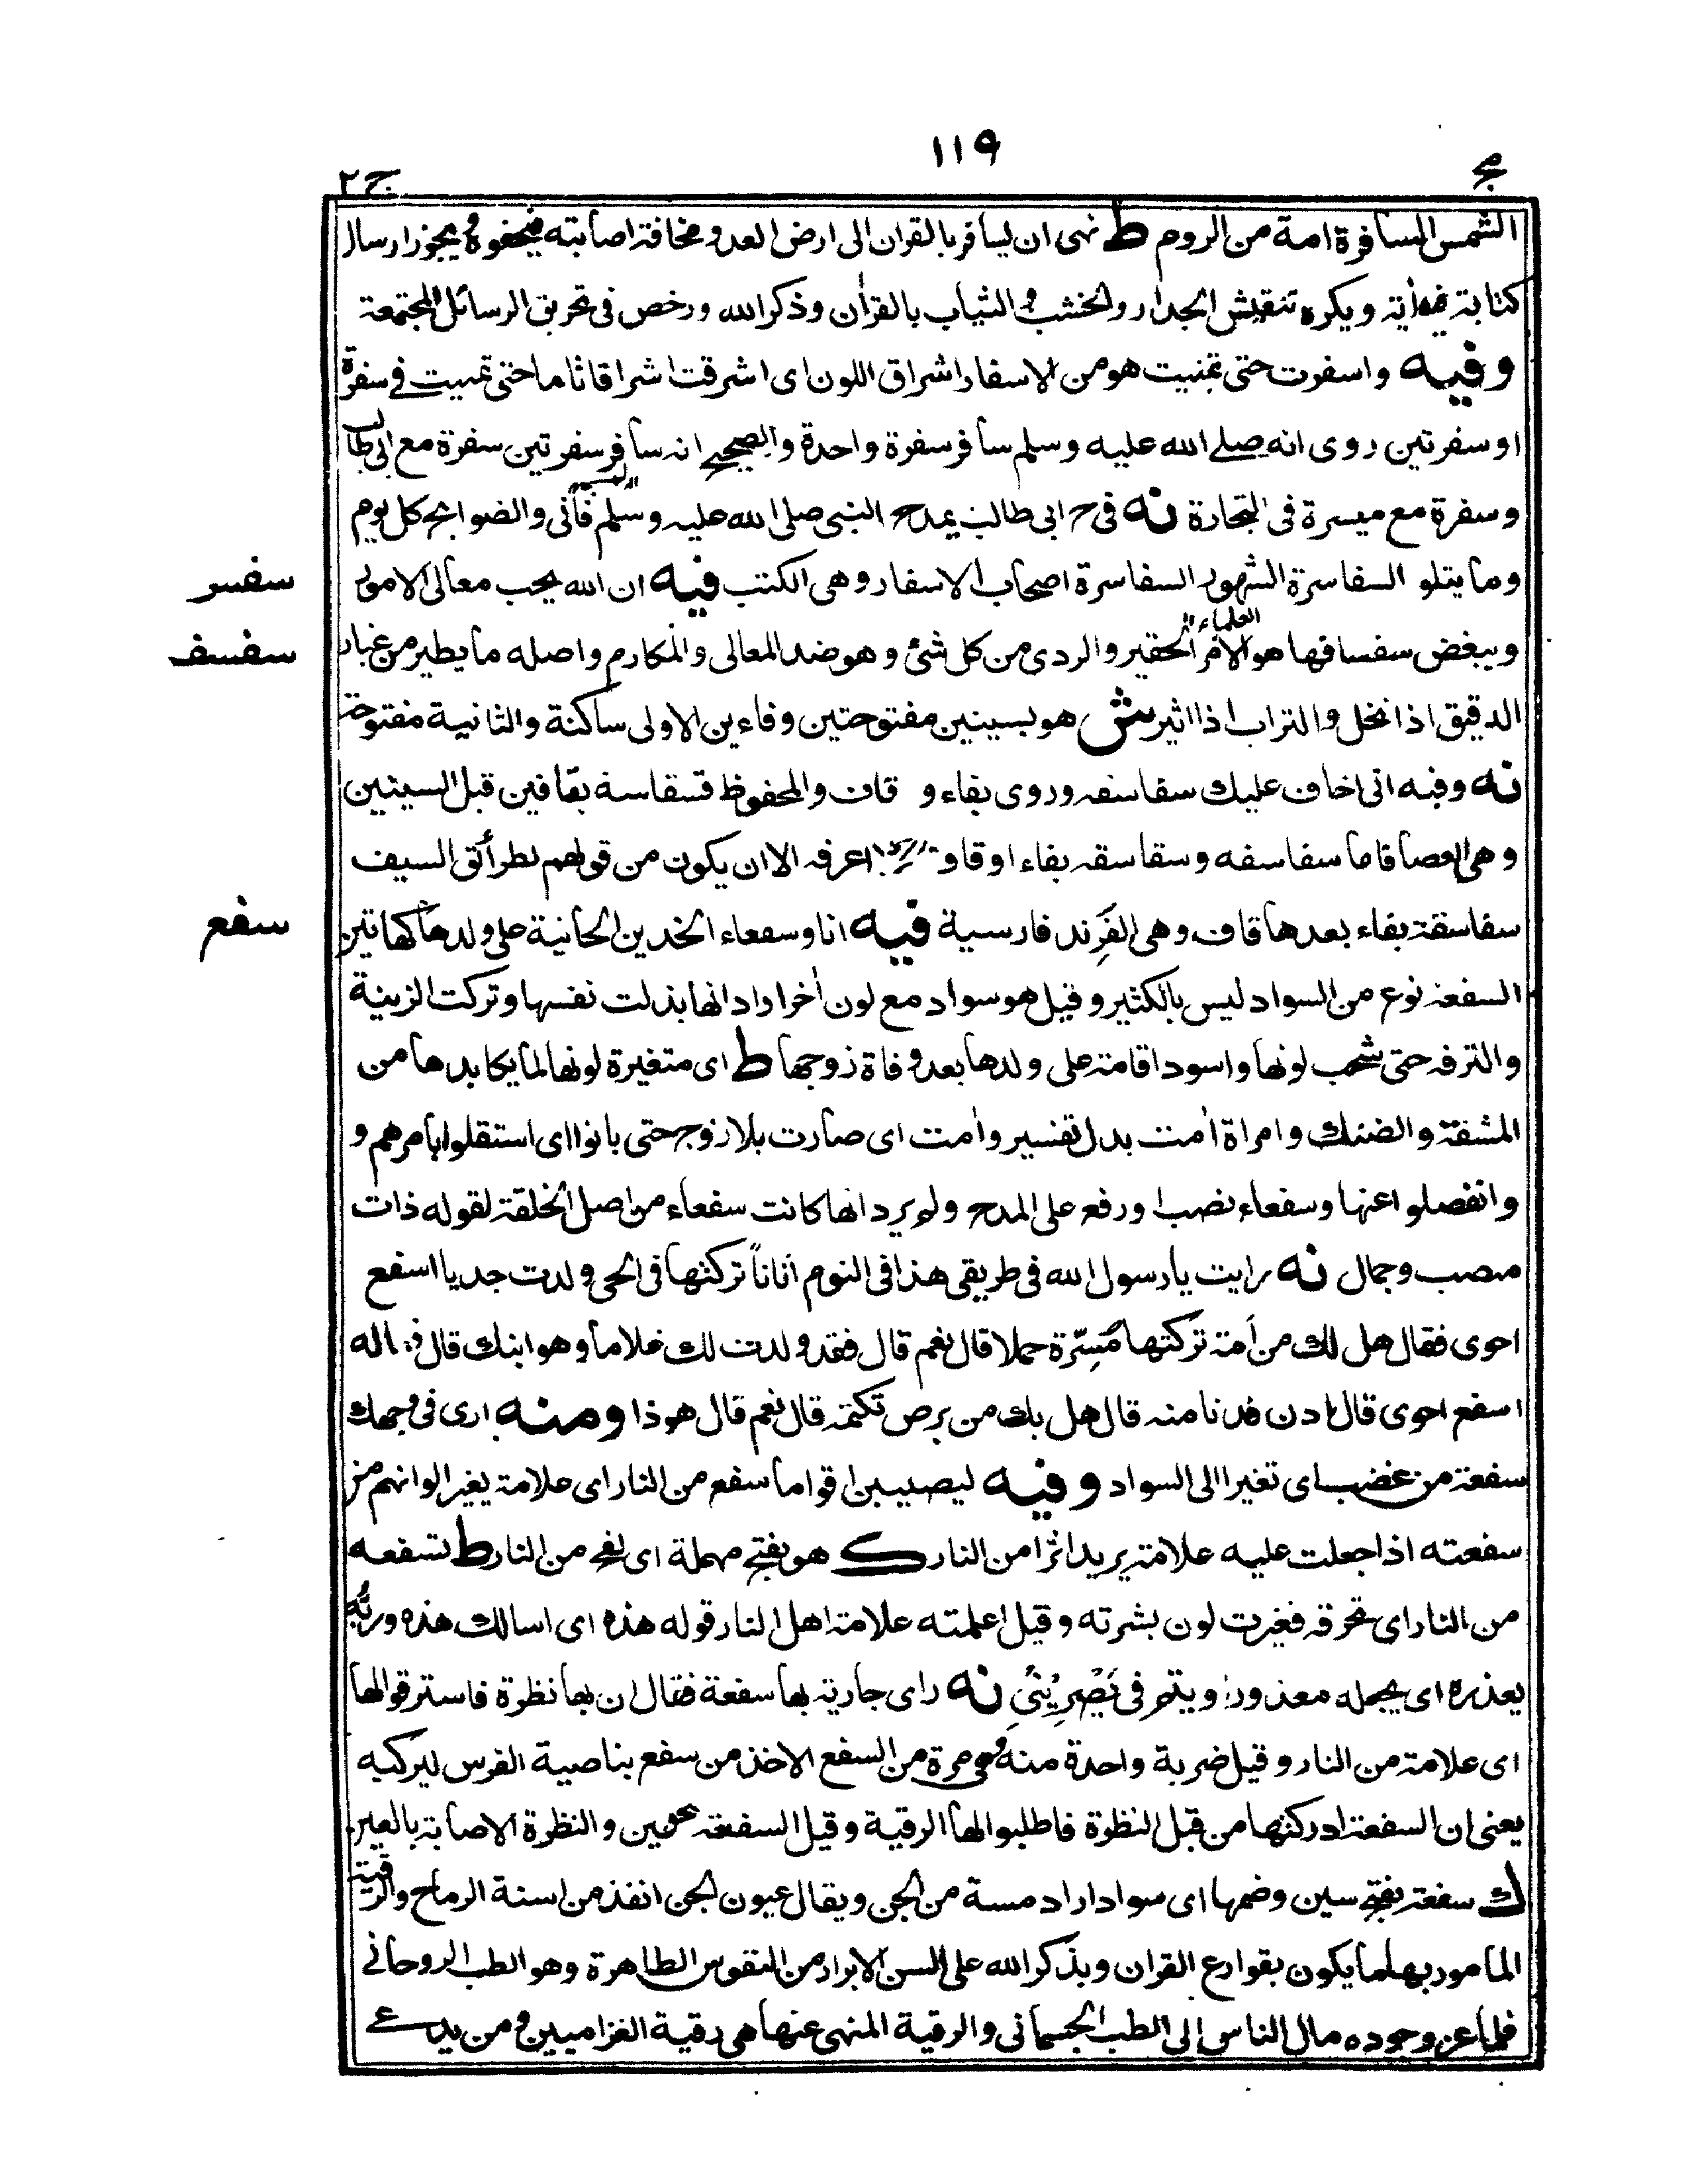 ١١٩
مج
ج ٢
الشمس المسافرة امة من الروم ط نهى ان يسافر بالقران الى ارض العدو مخافة اصابته ويجوز ارسال
كتابة فيه أية ويكره تنقيش الجدار والخشب و الثياب بالقرأن وذكر الله ورخص فى تحريق الرسائل المجتمعة
وفيه واسفرت حتى تمنيت هو من الاسفار اشراق اللون اى اشرقت اشراقا تاما حتى تمنيت فى سفرة
او سفرتين روى انه صلے الله عليه وسلم سافر سفرة واحدة والصحيح انه سافر سفرتين سفرة مع ابى طالب
وسفرة مع ميسرة فى التجارة نه فى ح ابى طالب يمدح النبى صلى الله عليه وسلم فأنى والضوابح كل يوم
وما يتلو السفاسرة الشهور السفاسرة اصحاب الاسفار وهى الكتب فيه ان الله يحب معالى الامور
سفسر
ويبغض سفسافها هو الامر الحقير والردى من كل شئ وهو ضد المعالى والمكارم واصله ما يطير من غبار
سفسف
الدقيق اذا نخل والتراب اذا اثير ش هو بسينين مفتوحتين وفاءين الاولى ساكنة والثانية مفتوحة
نه وفيه انى اخاف عليك سقاسفه وروى بفاء و قاف والمحفوظ قسقاسة بقافين قبل السينين
وهى العصا فاما سفاسفه وسقاسقه بفاء او قاف اعرفه الا ان يكون من قولهم لطرائق السيف
سفاسقة بفاء بعدها قاف وهى الفرند فارسية فيه انا وسفعاء الخدين الحانية على ولدها كهاتين
سفع
السفعة نوع من السواد ليس بالكثير وقيل هو سواد مع لون أخر اراد انها بذلت نفسها وتركت الزينة
والترفه حتى شحب لونها واسود اقامة على ولدها بعد وفاة زوجها ط اى متغيرة لونها لما يكابدها من
المشقة والضنك وامراة أمت بدل تفسير وأمت اى صارت بلا زوج حتى بانوا اى استقلوا بامرهم و
وانفصلوا عنها وسفعاء نصب او رفع على المدح ولم يرد انها كانت سفعاء من اصل الخلقة لقوله ذات
منصب وجمال نه رايت يا رسول الله فى طريقى هذا فى النوم اتاناً تركتها فى الحى ولدت جديا اسفع
احوى فقال هل لك من أمة تركتها مُسِرّة حملا قال نعم قال فقد ولدت لك غلاما وهو ابنك قال فماله
اسفع احوى قال ادن فدنا منه قال هل بك من برص تكتمه قال نعم قال هو ذا ومنه ارى فى وجهك
سفعة من غضب اى تغيرا الى السواد وفيه ليصيبن اقواما سفع من النار اى علامة يغير الوانهم من
سفعته اذا جعلت عليه علامة يريد اثرا من النار ك هو بفتح مهملة اى لفح من النار ط تسفعه
من النار اى تحرقه فغيرت لون بشرته وقيل اعلمته علامة اهل النار قوله هذه اى اسالك هذه وربُّه
يعذره اى يجعله معذورا ويتم فى يَصْرِيْنى نه راى جارية بها سفعة فقال ان بها نظرة فاسترقوا لها
اى علامة من النار وقيل ضربة واحدة منه وهى مرة من السفع الاخذ من سفع بناصية الفرس ليركبه
يعنى ان السفعة ادركتها من قبل النظرة فاطلبوا لها الرقية وقيل السفعة العين والنظرة الاصابة بالعين
ك سفعة بفتح سين وضمها اى سوادا اراد مسة من الجن ويقال عيون الجن انفذ من اسنة الرماح والرقية
المامور بها ما يكون بقوارع القران وبذكر الله على السن الابرار من النفوس الطاهرة وهو الطب الروحانى
فلما عز وجوده مال الناس الى الطب الجسمانى والرقية المنهى عنها هى رقية الغزاميين ومن يدعے